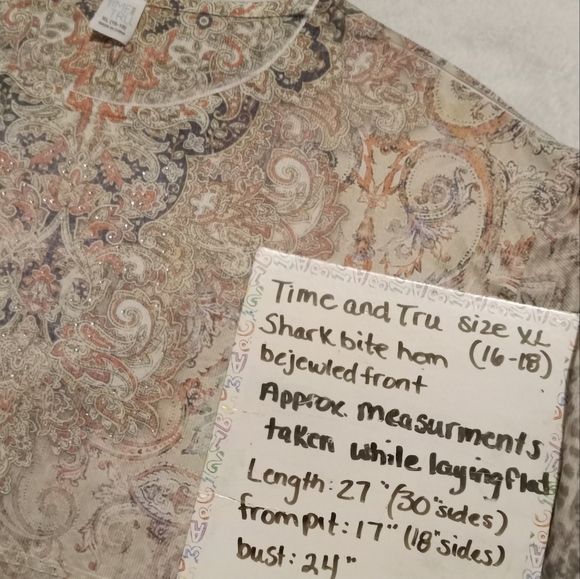 TIME & TRU
Time and Tru size XL
Shark bite hem (16-18)
bejewled front
Approx. measurments
taken while laying flat
Length: 27" (30" sides)
from pit: 17" (18" sides)
bust: 24"